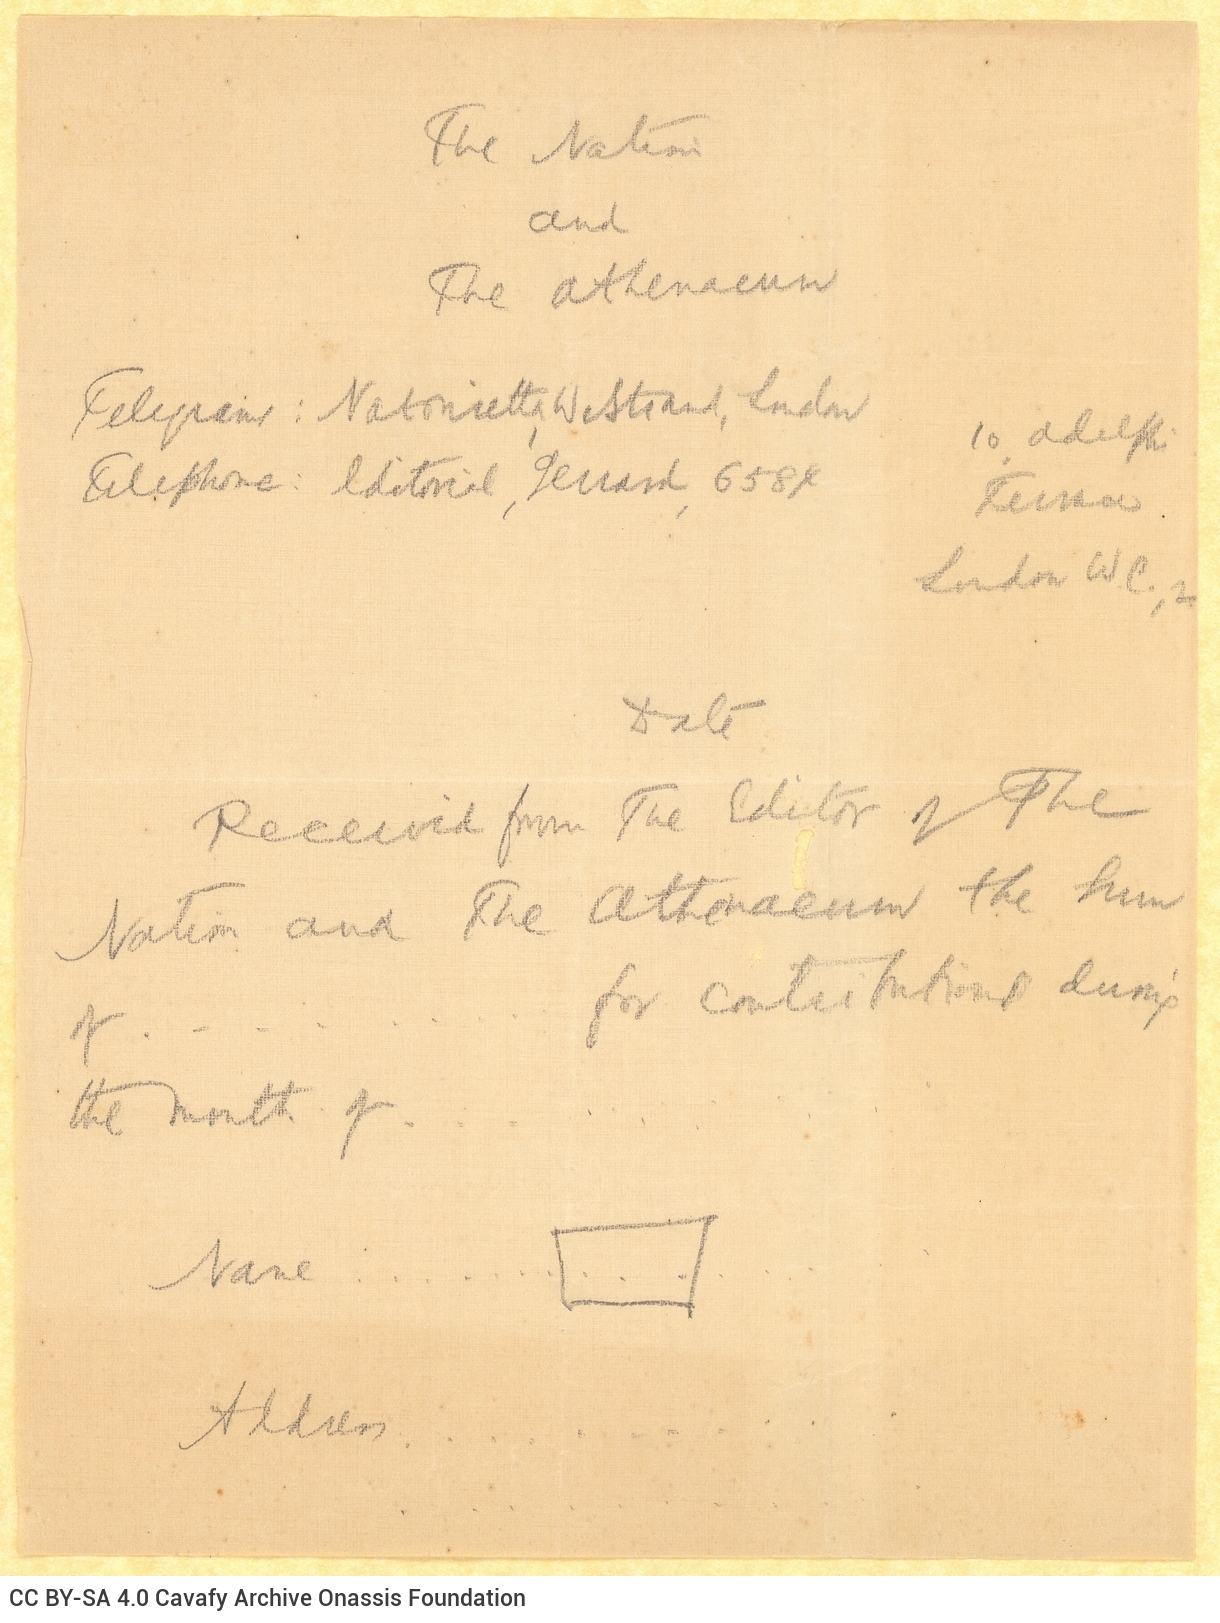 The Nation
and
The Athenaeum
Telegrams: Nationetta, WeStrand, London
Telephone: Editorial, Gerrard, 6584
10, Adelphi
Terrace
London W.C., 2
Date
Received from The Editor of The
Nation and The Athenaeum the sum
of . . . . . . . . for contributions during
the month of . . . . . . .
Name . . . . . . . . . . . .
Address . . . . . . . . . .
CC BY-SA 4.0 Cavafy Archive Onassis Foundation